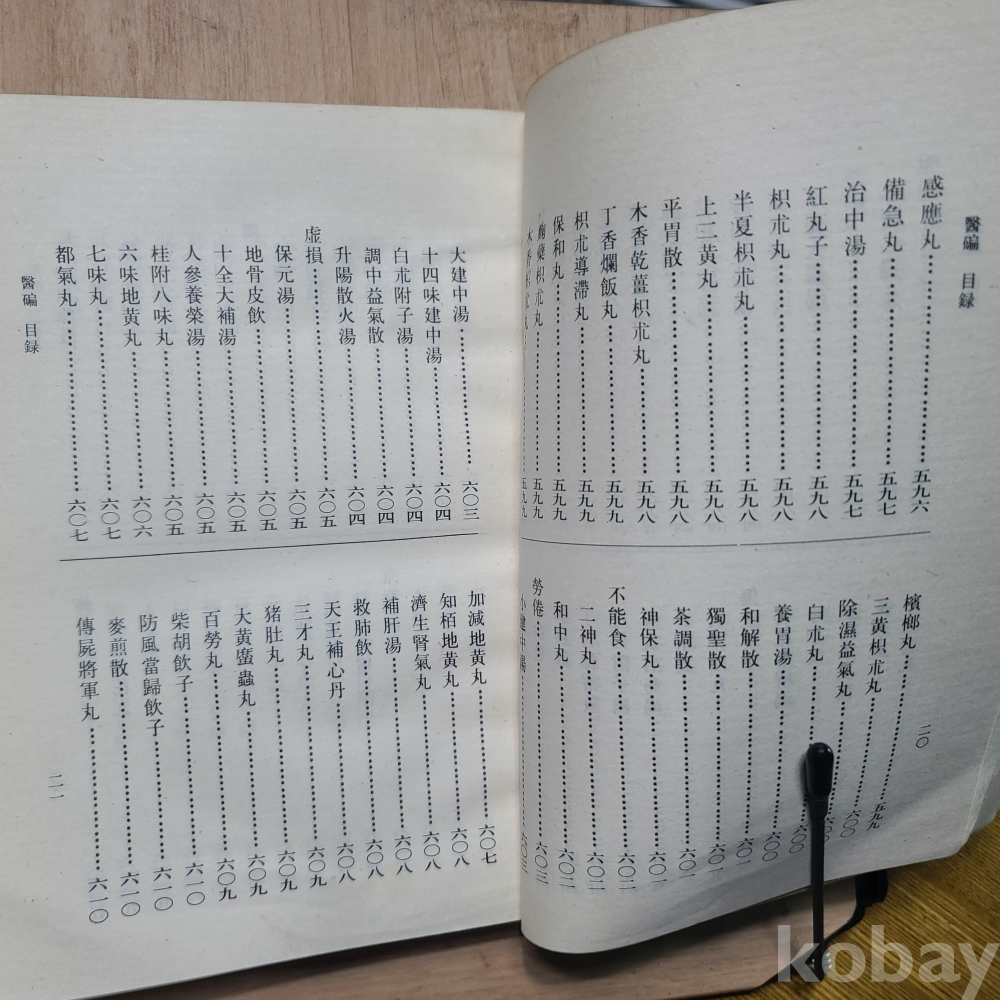 醫碥 目録
感應丸……五九六
備急丸……五九七
治中湯……五九七
紅丸子……五九八
枳朮丸……五九八
半夏枳朮丸……五九八
上二黃丸……五九八
平胃散……五九八
木香乾薑枳朮丸……五九八
丁香爛飯丸……五九九
枳朮導滯丸……五九九
保和丸……五九九
麯蘗枳朮丸……五九九
木香枳朮丸……五九九
檳榔丸……
三黃枳朮丸……五九九
除濕益氣丸……六〇〇
白朮丸……六〇〇
養胃湯……六〇〇
和解散……六〇一
獨聖散……六〇一
茶調散……六〇一
神保丸……六〇一
不能食……六〇二
二神丸……六〇二
和中丸……六〇二
勞倦……六〇三
小建中湯……六〇三
二〇
大建中湯……六〇三
十四味建中湯……六〇四
白朮附子湯……六〇四
調中益氣散……六〇四
升陽散火湯……六〇四
虛損……六〇五
保元湯……六〇五
地骨皮飲……六〇五
十全大補湯……六〇五
人參養榮湯……六〇五
桂附八味丸……六〇五
六味地黃丸……六〇六
七味丸……六〇七
都氣丸……六〇七
加減地黃丸……六〇七
知栢地黃丸……六〇八
濟生腎氣丸……六〇八
補肝湯……六〇八
救肺飲……六〇八
天王補心丹……六〇八
三才丸……六〇九
猪肚丸……六〇九
大黃䗪蟲丸……六〇九
百勞丸……六〇九
柴胡飲子……六一〇
防風當歸飲子……六一〇
麥煎散……六一〇
傳屍將軍丸……六一〇
醫碥 目録
二一
kobay